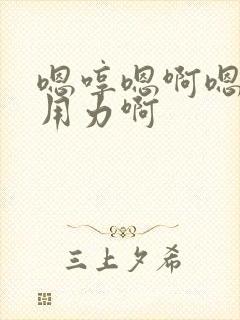 嗯哼嗯啊嗯
用力啊
三上夕希